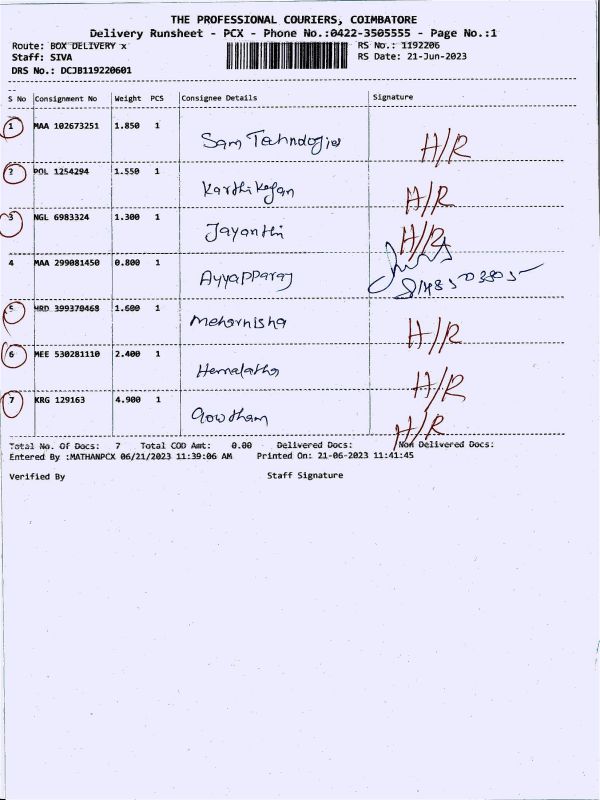 THE PROFESSIONAL COURIERS, COIMBATORE
Delivery Runsheet - PCX - Phone No.:0422-3505555 - Page No.:1
Route: BOX DELIVERY x RS No.: 1192206
Staff: SIVA RS Date: 21-Jun-2023
DRS No.: DCJB119220601
S No Consignment No Weight PCS Consignee Details Signature
1 MAA 102673251 1.850 1 Sam Technologies H/R
2 POL 1254294 1.550 1 Karthikeyan H/R
3 NGL 6983324 1.300 1 Jayanthi H/R
4 MAA 299081450 0.800 1 Ayyapparaj
5 HRD 399370468 1.600 1 Meharnisha H/R
6 MEE 530281110 2.400 1 Hemalatha H/R
7 KRG 129163 4.900 1 Gowtham H/R
Total No. Of Docs: 7 Total COD Amt: 0.00 Delivered Docs: Non Delivered Docs:
Entered By :MATHANPCX 06/21/2023 11:39:06 AM Printed On: 21-06-2023 11:41:45
Verified By Staff Signature